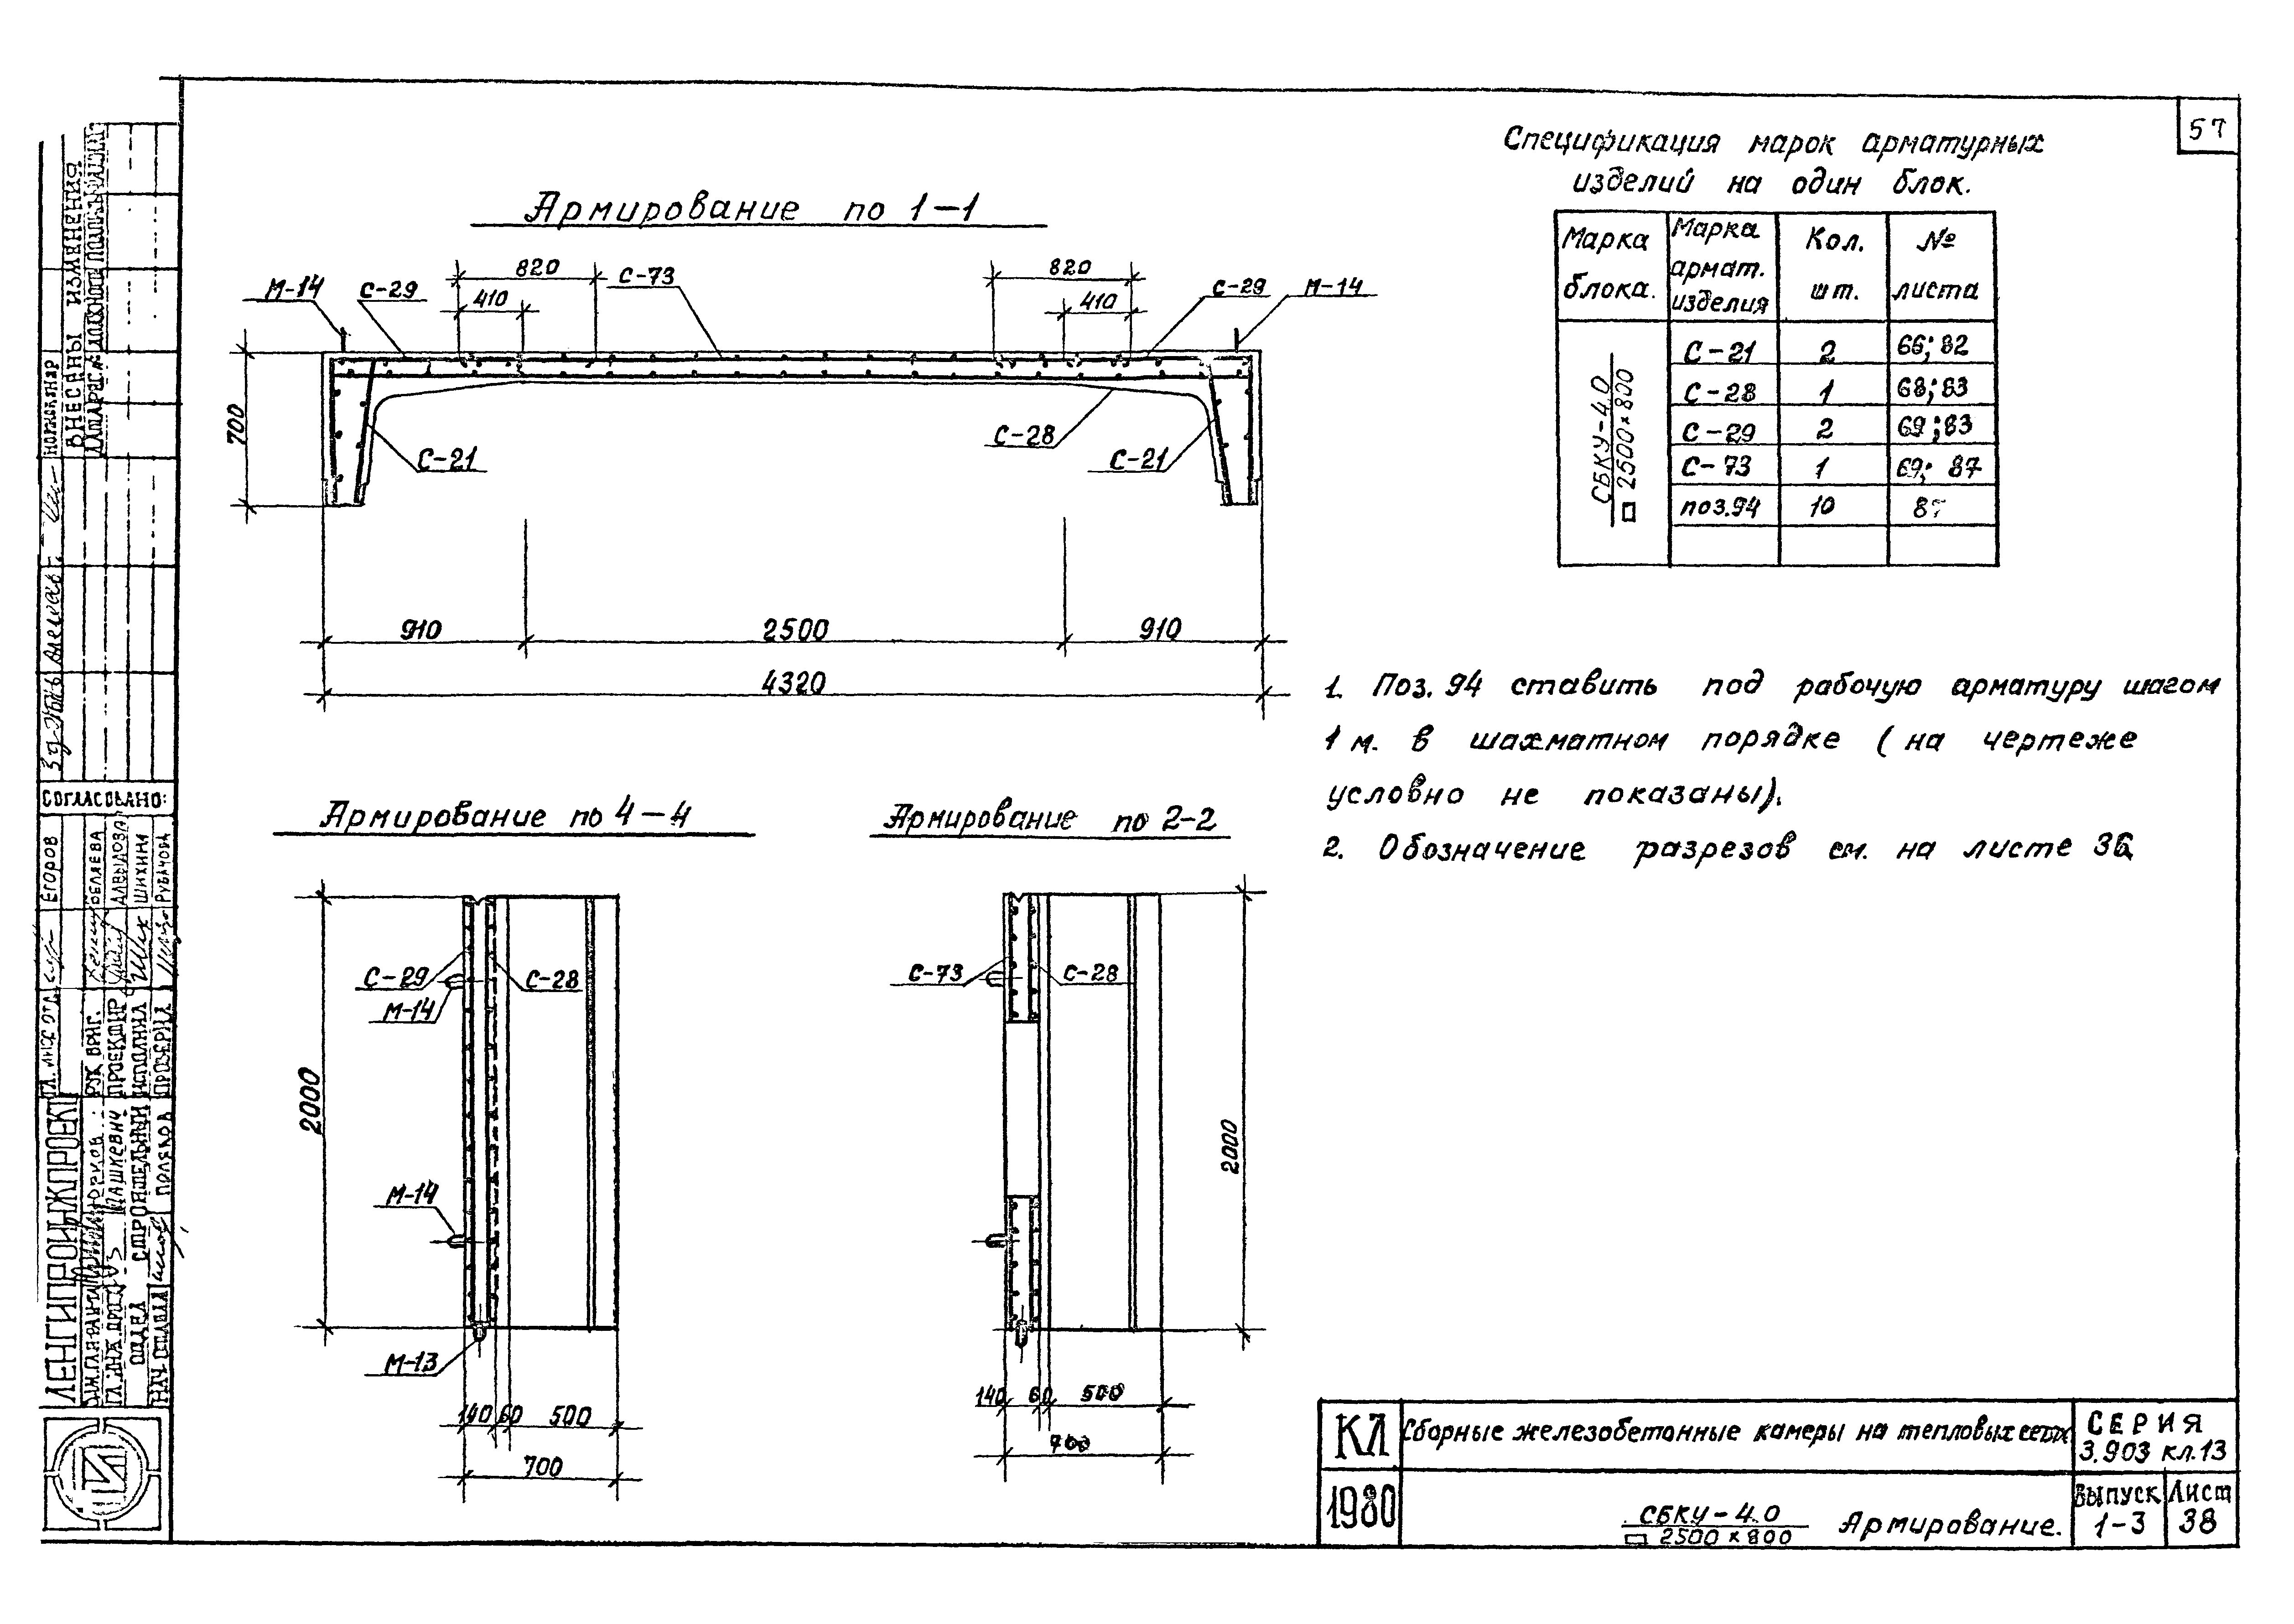 57
Спецификация марок арматурных
изделий на один блок.
Марка блока. Марка армат. изделия Кол. шт. № листа
СБКУ-4.0
□ 2500×800
С-21 2 66; 82
С-28 1 68; 83
С-29 2 69; 83
С-73 1 69; 87
поз.94 10 87
Армирование по 1-1
820 С-73 820
М-14 С-29 410 410 С-29 М-14
700
С-21 С-28 С-21
910 2500 910
4320
1. Поз. 94 ставить под рабочую арматуру шагом
1 м. в шахматном порядке (на чертеже
условно не показаны).
2. Обозначение разрезов см. на листе 36
Армирование по 4-4
2000
С-29 С-28
М-14
М-14
М-13
140 60 500
700
Армирование по 2-2
С-73 С-28
2000
140 60 500
700
КЛ Сборные железобетонные камеры на тепловых сетях СЕРИЯ
3.903 кл.13
1980 СБКУ-4.0
□ 2500×800 Армирование.
Выпуск Лист
1-3 38
ВНЕСЕНЫ ИЗМЕНЕНИЯ
СОГЛАСОВАНО:
ЕГОРОВ
БЕЛЯЕВА
ШИХИНА
РУК. БРИГ.
ПРОЕКТИР
ИСПОЛНИЛ
ПРОВЕРИЛ
ЛЕНГИПРОИНЖПРОЕКТ
ПАШКЕВИЧ
ОТДЕЛ СТРОИТЕЛЬНЫЙ
НАЧ. ОТДЕЛА ПОЛЯКОВ